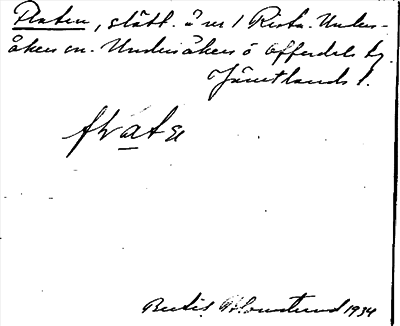 Platen, slått. å nr 1 Rista. Under-
åkers sn. Undersåkers o Offerdals tg.
Jämtlands l.
Bertil Blomstrand 1934